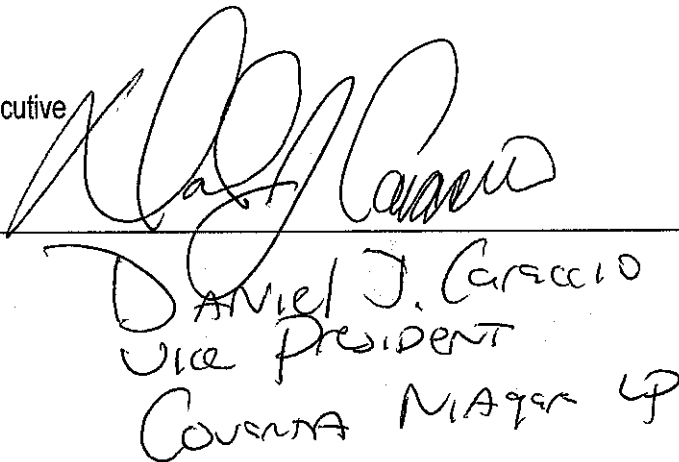 cutive
Daniel J. Caraccio
Vice President
Covanta Niagara LP